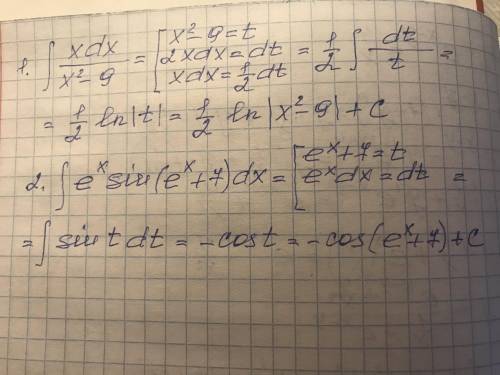 1. ∫ xdx / x²-9 = [ x²-9=t 2xdx=dt xdx=1/2 dt = 1/2 ∫ dt/t =
= 1/2 ln|t| = 1/2 ln|x²-9|+C
2. ∫ eˣ sin(eˣ+7)dx = [ eˣ+7=t eˣdx=dt =
= ∫ sin t dt = -cost = -cos(eˣ+7)+C